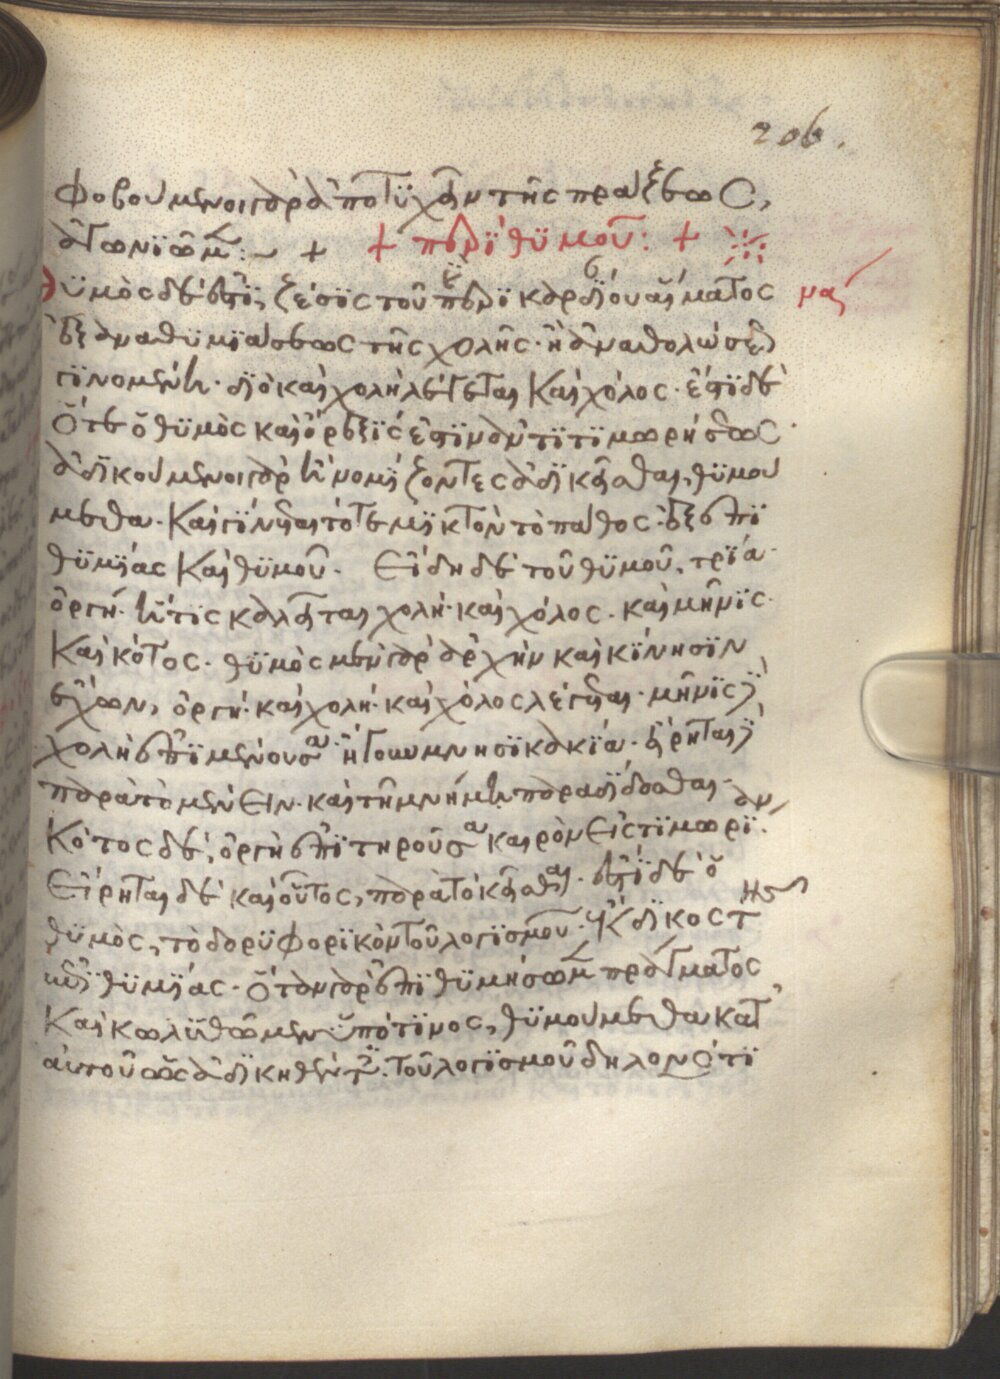 206.
φοβούμενοι γὰρ ἀποτυχεῖν τῆς πράξεως,
ἀγωνιῶμεν :~ +   + περὶ θϋμοῦ: +
θϋμὸς δέ ἐστϊ, ζέσϊς τοῦ περϊ καρδΐαν αἵματος   μα
ἐξ ἀναθϋμϊάσεως τῆς χολῆς· ἢ ἀναθολώσεως
γϊνομένη· δϊὸ καὶ χολὴ λέγεται καὶ χόλος· ἔστϊ δὲ
ὅτε ὁ θϋμὸς καὶ ὄρεξΐς ἐστϊν ἀντϊτϊμωρήσεως·
ἀδϊκούμενοι γὰρ ἢ νομΐζοντες ἀδϊκεῖσθαι, θϋμού
μεθα· καὶ γΐνεται τότε μϊκτὸν τὸ πάθος· ἐξ ἐπϊ
θϋμΐας καὶ θϋμοῦ. Εἴδη δὲ τοῦ θϋμοῦ, τρΐα·
ὀργή· ἥτϊς καλεῖται χολή· καὶ χόλος· καὶ μῆνϊς·
καὶ κότος· θϋμὸς μὲν γὰρ ἀρχὴν καὶ κΐνησϊν
ἔχων, ὀργή· καὶ χολή· καὶ χόλος λέγεται· μῆνϊς δὲ
χολὴ ἐπϊμένουσα· ἤγουν μνησϊκακΐα· εἴρηται δὲ
παρὰ τὸ μένειν· καὶ τῆ μνήμη παραδΐδοσθαι·
κότος δὲ, ὀργὴ ἐπϊτηροῦσα καιρὸν εἰς τϊμωρΐαν·
Εἴρηται δὲ καὶ οὗτος, παρὰ τὸ κεῖσθαι· ἐστϊ δὲ ὁ
θϋμὸς, τὸ δορϋφορϊκὸν τοῦ λογϊσμοῦ· ἔκδϊκος τῆς
ἐπϊθϋμΐας· ὅταν γὰρ ἐπϊθϋμήσωμεν πράγματος
καὶ κωλϋθῶμεν ὑπό τϊνος, θϋμούμεθα κατ'
αὐτοῦ ὡς ἀδϊκηθέντες· τοῦ λογϊσμοῦ δηλονότϊ